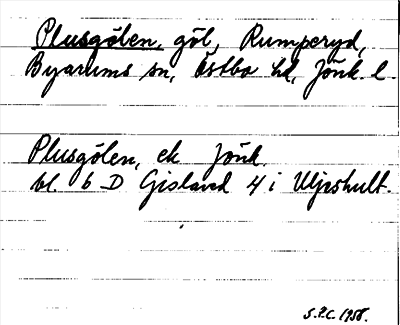 Plusgölen, göl, Rumperyd,
Byarums sn, Östbo hd, Jönk. l.
Plusgölen, ek Jönk.
bl 6 D Gislaved 4 i Uljeshult.
S.P.C. 1958.